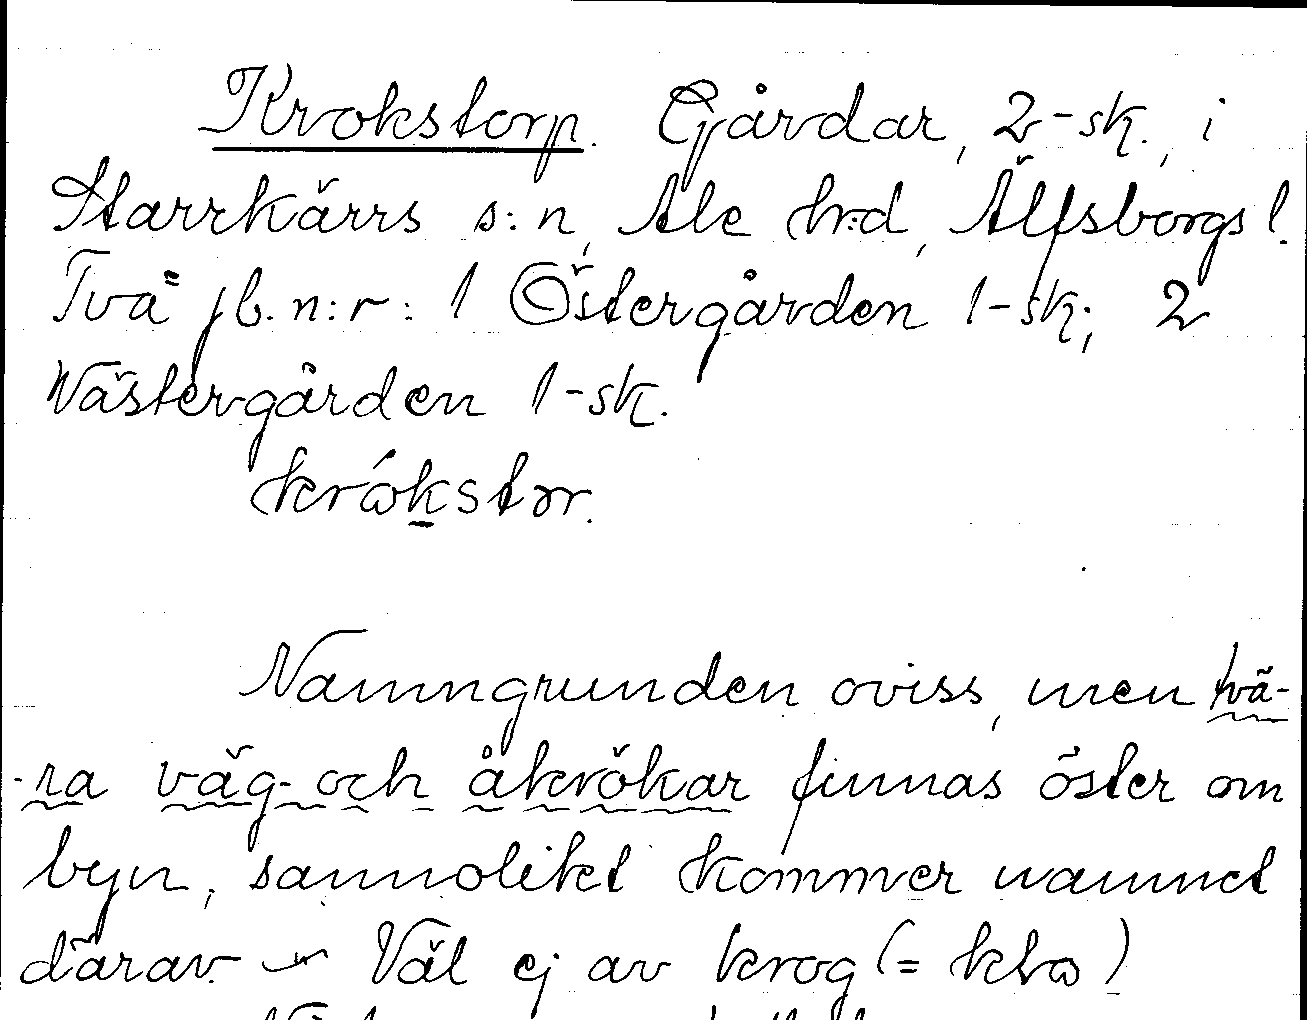 Krokstorp. Gårdar, 2-sk., i
Starrkärrs s:n, Ale hrd, Älfsborgs l.
Två jb. n:r: 1 Östergården 1-sk; 2
Västergården 1-sk.
Namngrunden oviss, men tvä-
-ra väg- och åkrökar finnas öster om
byn, sannolikt kommer namnet
därav. Väl ej av krog (=